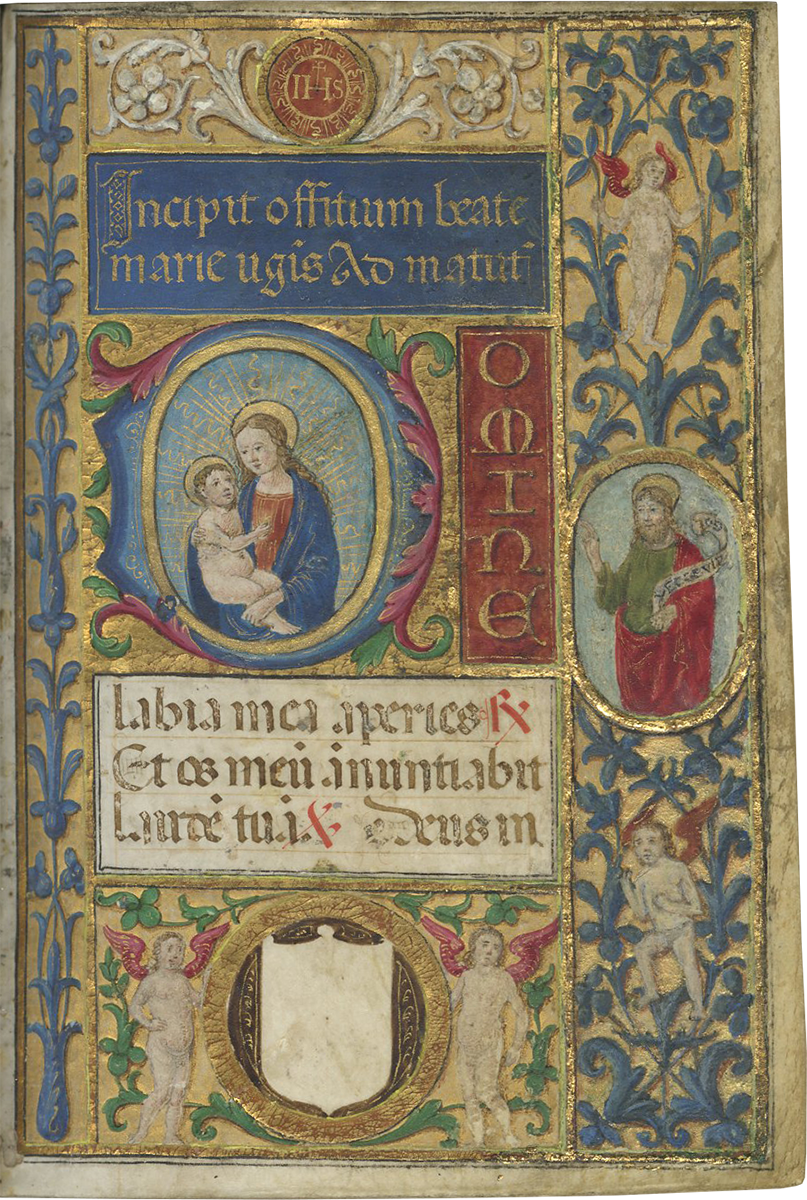 IHS
Incipit offitium beate
marie ugis Ad matuti
DOMINE
labia mea aperies ℞
Et os meū anuntiabit
laudē tuā ℞ deus in